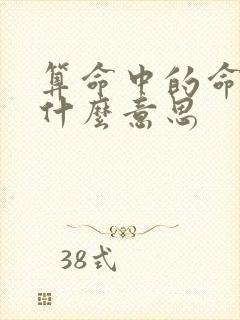 算命中的命
什麼意思
38式